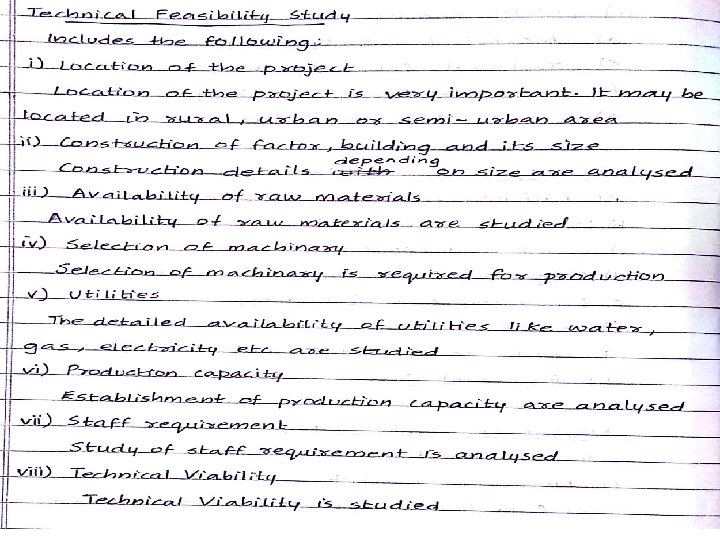 Technical Feasibility Study
Includes the following:
i) Location of the project
Location of the project is very important. It may be
located in rural, urban or semi-urban area
ii) Construction of factor, building and its size
depending
Construction details with on size are analysed
iii) Availability of raw materials
Availability of raw materials are studied
iv) Selection of machinary
Selection of machinary is required for production
v) Utilities
The detailed availability of utilities like water,
gas, electricity etc are studied
vi) Production capacity
Establishment of production capacity are analysed
vii) Staff requirement
Study of staff requirement is analysed
viii) Technical Viability
Technical Viability is studied